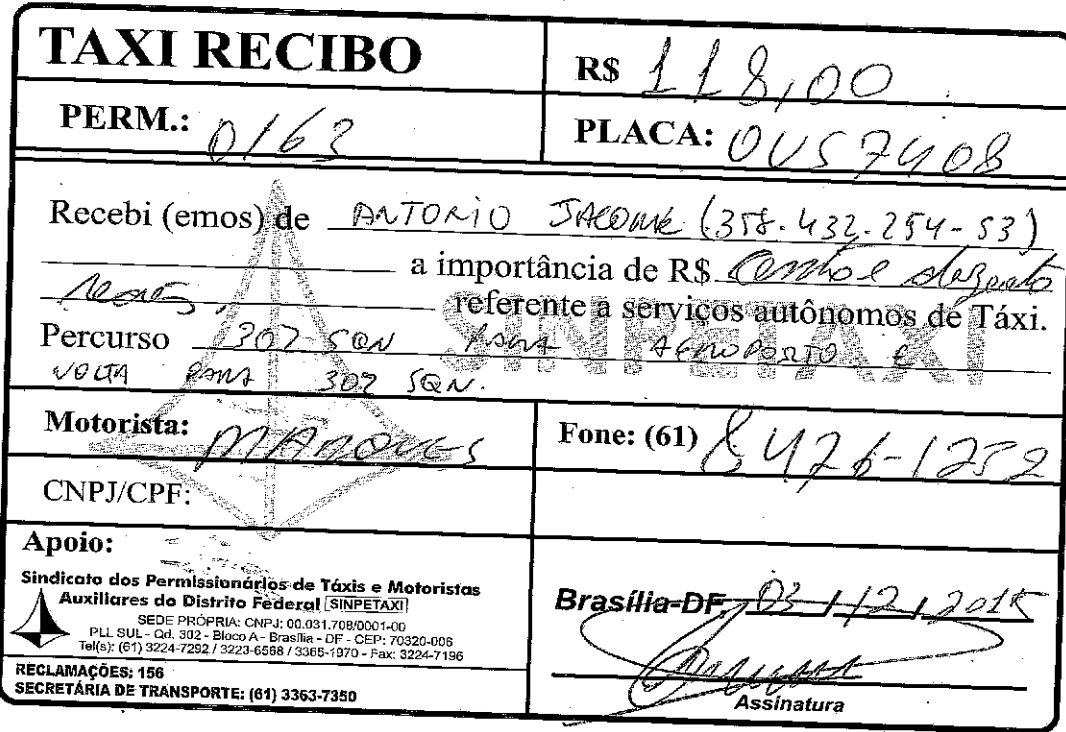 TAXI RECIBO
R$ 118,00
PERM.: 0163
PLACA: OVS7408
Recebi (emos) de ANTONIO JACOME (358.432.254-53)
a importância de R$ Cento e dezoito
reais, referente a serviços autônomos de Táxi.
SINPETAXI
Percurso 302 SQN PARA AEROPORTO E
VOLTA PARA 302 SQN.
Motorista: MARQUES
Fone: (61) 8476-1252
CNPJ/CPF:
Apoio:
Sindicato dos Permissionários de Táxis e Motoristas
Auxiliares do Distrito Federal SINPETAXI
SEDE PRÓPRIA: CNPJ: 00.031.708/0001-00
PLL SUL - Qd. 302 - Bloco A - Brasília - DF - CEP: 70320-006
Tel(s): (61) 3224-7292 / 3223-6568 / 3365-1970 - Fax: 3224-7196
RECLAMAÇÕES: 156
SECRETÁRIA DE TRANSPORTE: (61) 3363-7350
Brasília-DF, 03 / 12 / 2015
Assinatura